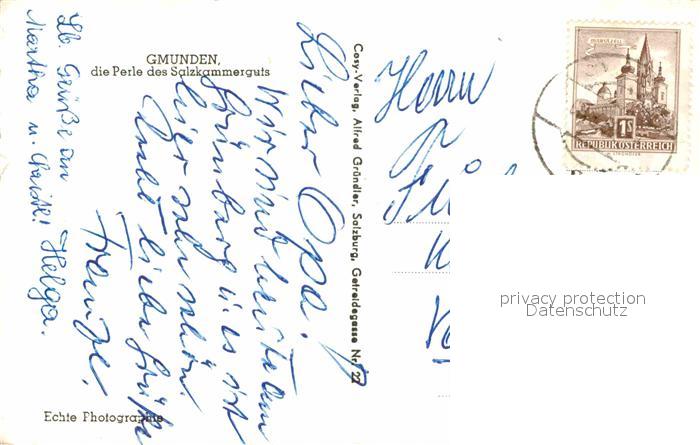 GMUNDEN,
die Perle des Salzkammerguts
Lieber Opa!
Wir sind heute am
Grünberg u. es ist
hier sehr schön.
Recht liebe Grüße
Franzl.
Lb. Grüße an
Martha u. Christl! Helga.
Echte Photographie
Cosy-Verlag, Alfred Gründler, Salzburg, Getreidegasse Nr. 22
Herrn
MARIAZELL
1S
REPUBLIK ÖSTERREICH
privacy protection
Datenschutz